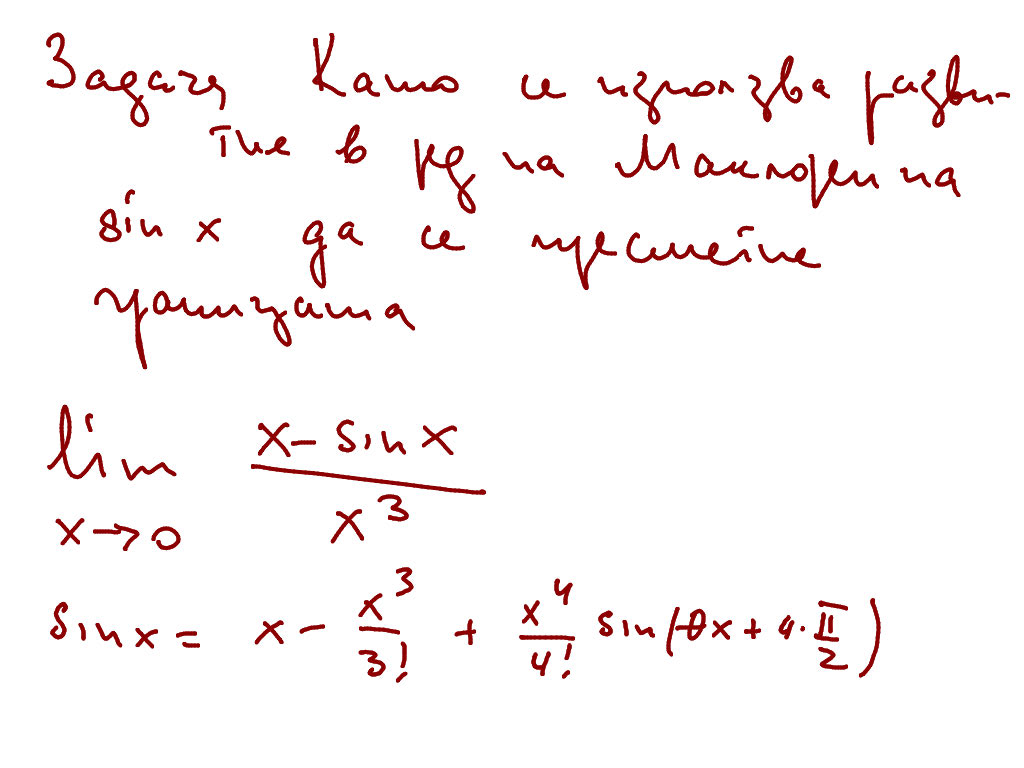 Задача Като се използва разви-
тие в ред на Маклорен на
sin x да се пресметне
границата
lim x - sin x / x³
x → 0
sin x = x - x³/3! + x⁴/4! sin(θx + 4·π/2)